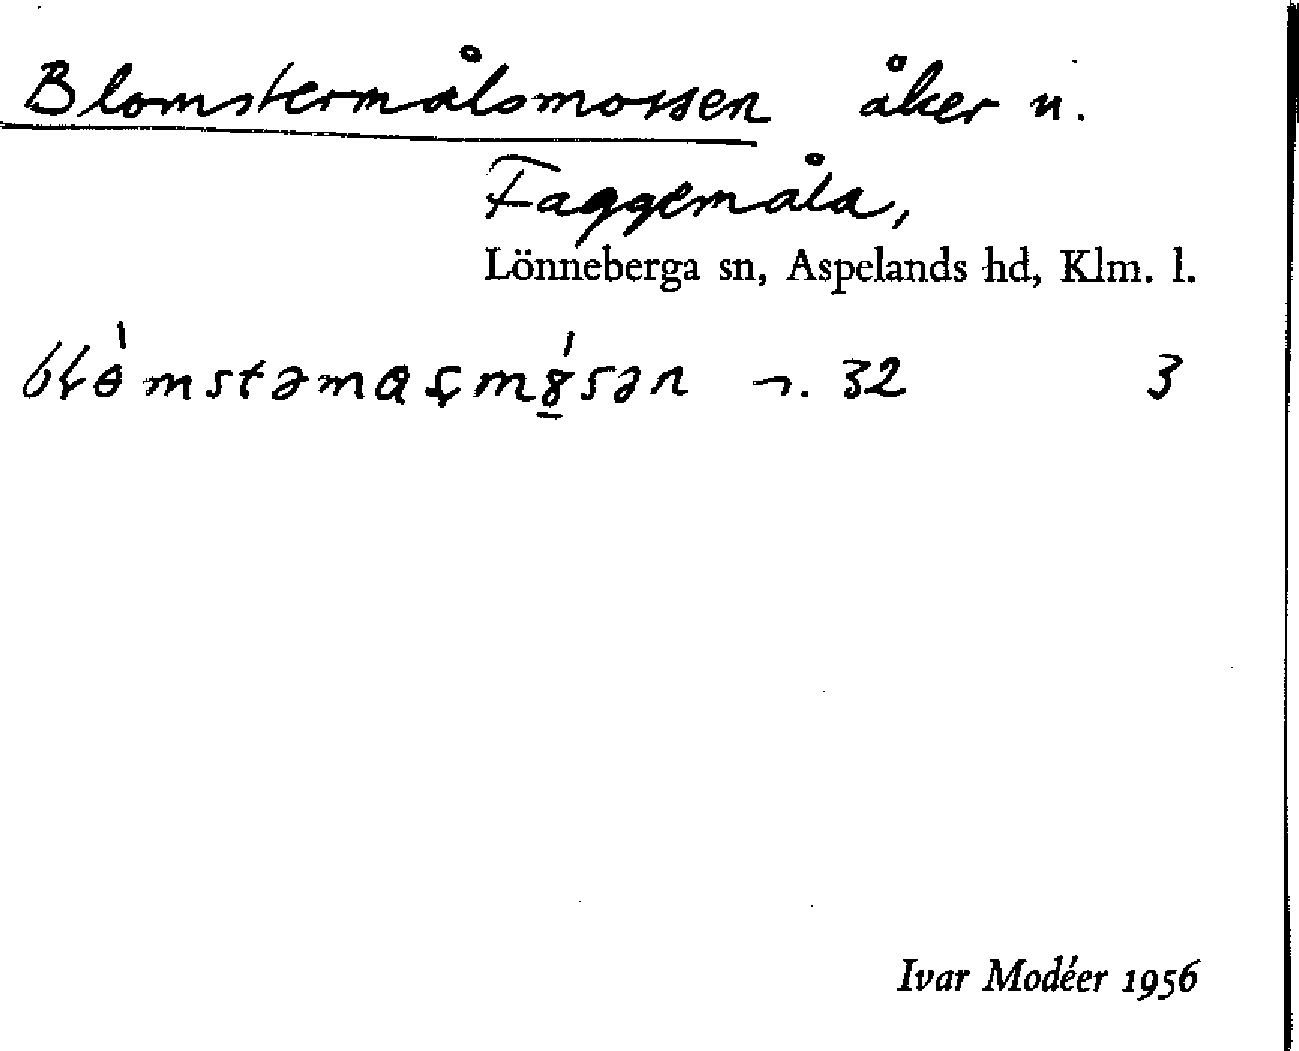 Blomstermålsmossen åker u.
Faggemåla,
Lönneberga sn, Aspelands hd, Klm. l.
32 3
Ivar Modéer 1956